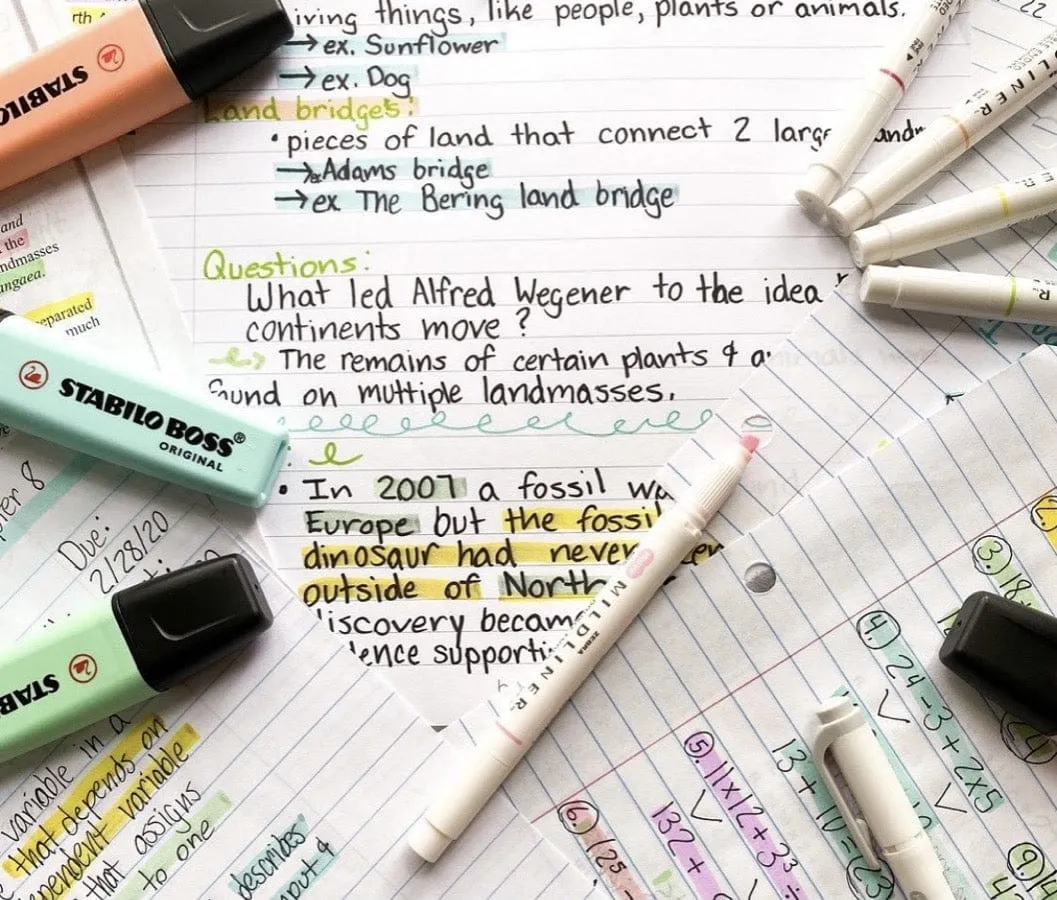 rth
iving things, like people, plants or animals.
→ ex. Sunflower
→ ex. Dog
Land bridges:
• pieces of land that connect 2 large
→ Adams bridge
→ ex The Bering land bridge
Questions:
What led Alfred Wegener to the idea
continents move?
The remains of certain plants &
found on multiple landmasses.
• In 2007 a fossil
Europe but the fossil
dinosaur had never
outside of North
discovery becam
ence supporti
STABILO
and
the
ndmasses
angaea.
eparated
much
STABILO BOSS®
ORIGINAL
8
Due:
2/28/20
STABILO
variable in a
that depends on
dependent variable
that assigns
to one
describes
nput &
LINER
MILDLINER
ZEBRA
3. 18
4. 24-3+2x5
13+10=23
5. 11x12+3³÷
132+
6. 125-
9.